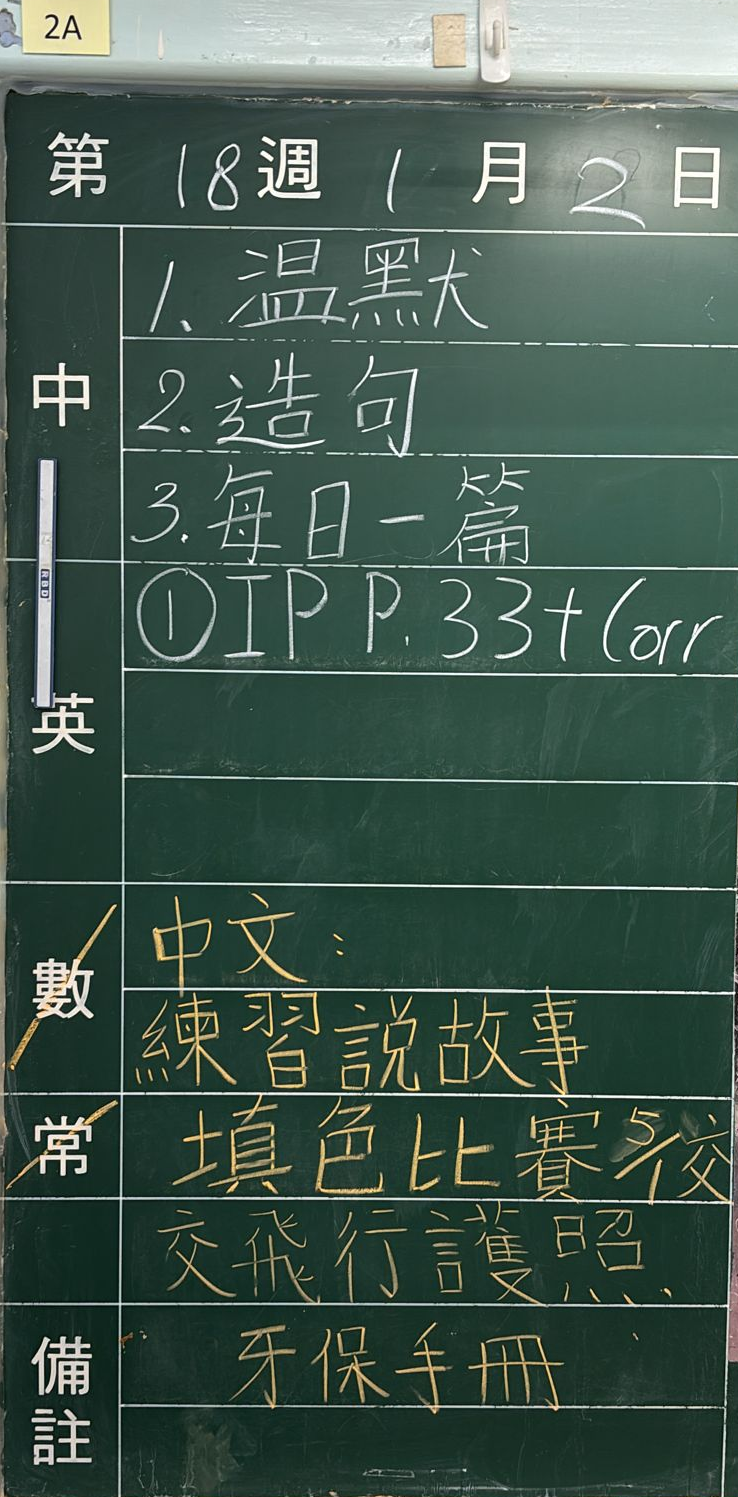 2A
第 18 週 1 月 2 日
中
1. 温默
2. 造句
3. 每日一篇
英
① IP P. 33 + Corr
數
中文：
練習説故事
常
填色比賽 5/1交
交飛行護照
備註
牙保手冊
RBD